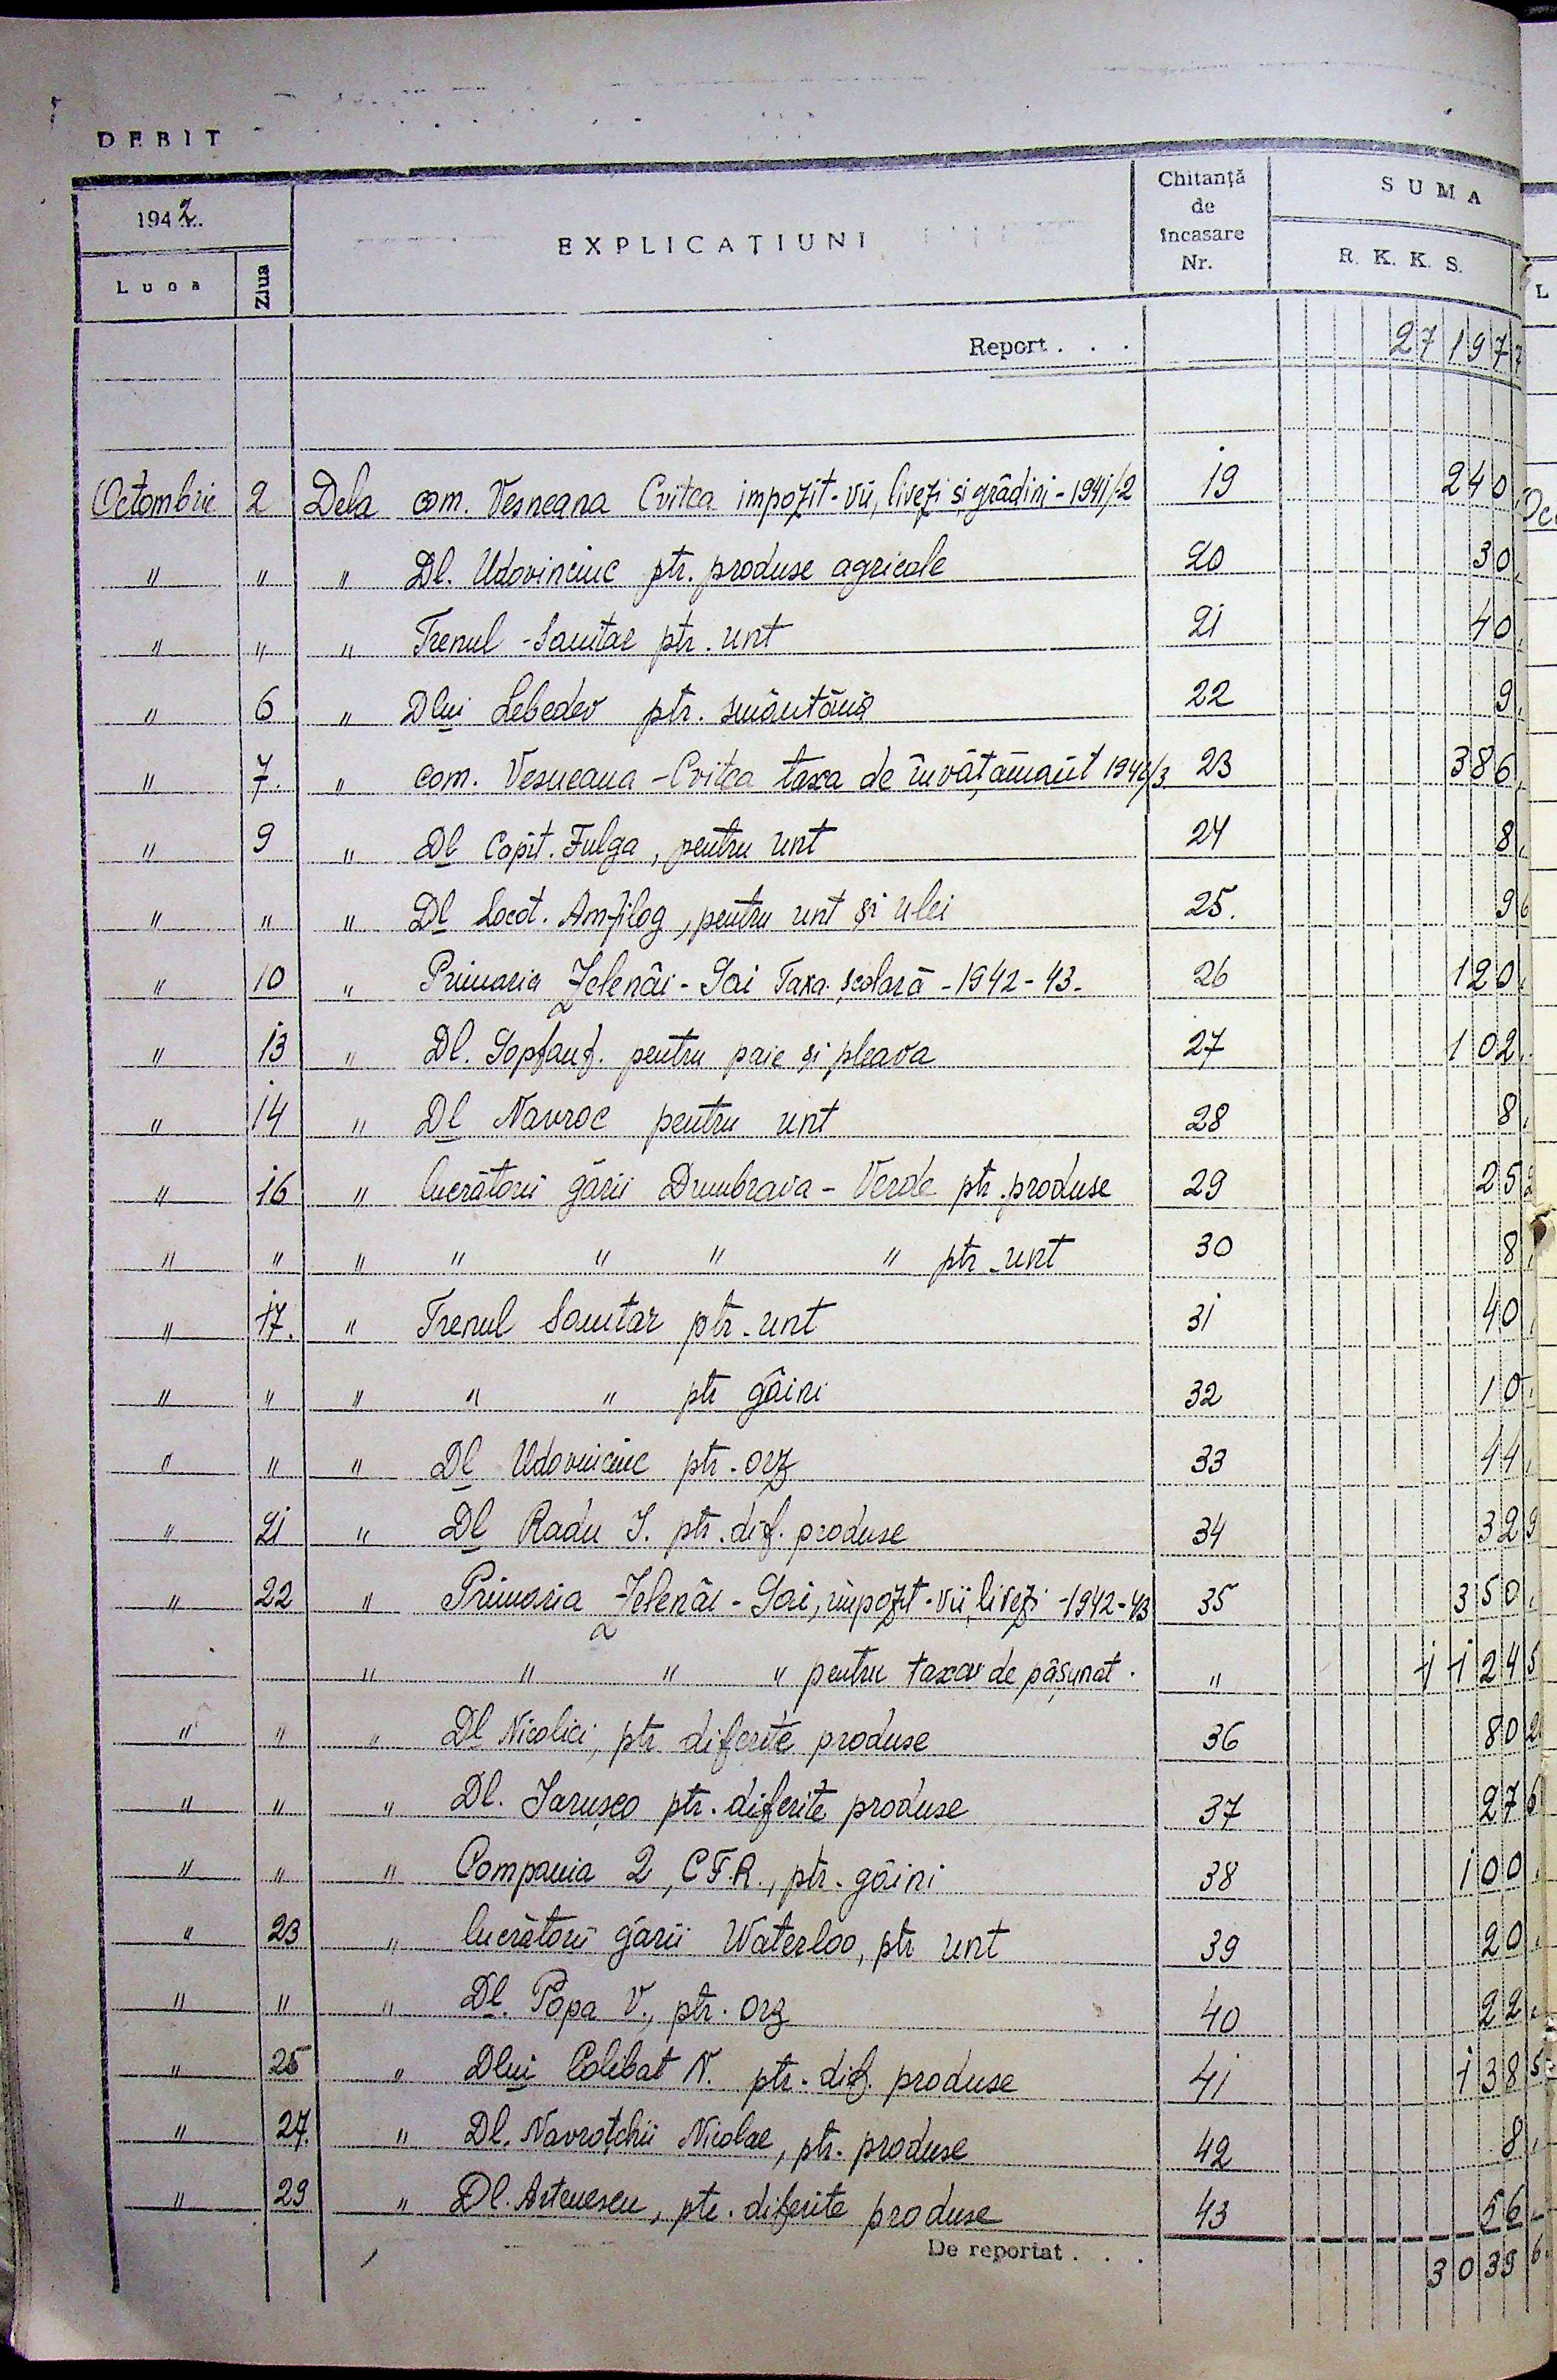 DEBIT
1942
Luna Ziua EXPLICAȚIUNI Chitanță de încasare Nr. SUMA R. K. K. S.
Report . . . 27 197
Octombrie 2 Dela com. Vesneana Cvitca impozit - vii, livezi și grădini - 1941/2 19 240
" " " Dl. Udovinciuc ptr. produse agricole 20 30
" " " Trenul - Sanitar ptr. unt 21 40
" 6 " Dlui Lebedev ptr. smântână 22 9
" 7. " com. Vesneana - Cvitca taxa de învățământ 1942/3 23 386
" 9 " Dl Capit. Fulga, pentru unt 24 8
" " " Dl Locot. Amfilog, pentru unt și ulei 25. 9 6
" 10 " Primaria Zelenâi - Gai Taxa școlară - 1942 - 43. 26 120
" 13 " Dl. pentru paie și pleava 27 102
" 14 " Dl Navroc pentru unt 28 8
" 16 " lucrătorii gării Dumbrava - Verde ptr. produse 29 25
" " " " " " " ptr. unt 30 8
" 17. " Trenul Sanitar ptr. unt 31 40
" " " " " ptr găini 32 10
" " " Dl Udovinciuc ptr. orz 33 44
" 21 " Dl Radu I. ptr. dif. produse 34 32 9
" 22 " Primaria Zelenâi - Gai, impozit - vii, livezi - 1942 - 43 35 350
" " " " pentru taxa de pășunat. " 1124 5
" " " Dl Nicolici, ptr diferite produse 36 80 2
" " " Dl. Iarușco ptr. diferite produse 37 27 6
" " " Compania 2, C.F.R., ptr. găini 38 100
" 23 " lucrătorii gării Waterloo, ptr unt 39 20
" " " Dl. Popa V., ptr. orz 40 22
" 25 " Dlui Colibat N. ptr. dif. produse 41 138 5
" 27. " Dl. Navroțchii Nicolae, ptr. produse 42 8
" 29 " Dl. Artenescu, ptr. diferite produse 43 56
De reportat . . . 3039 6